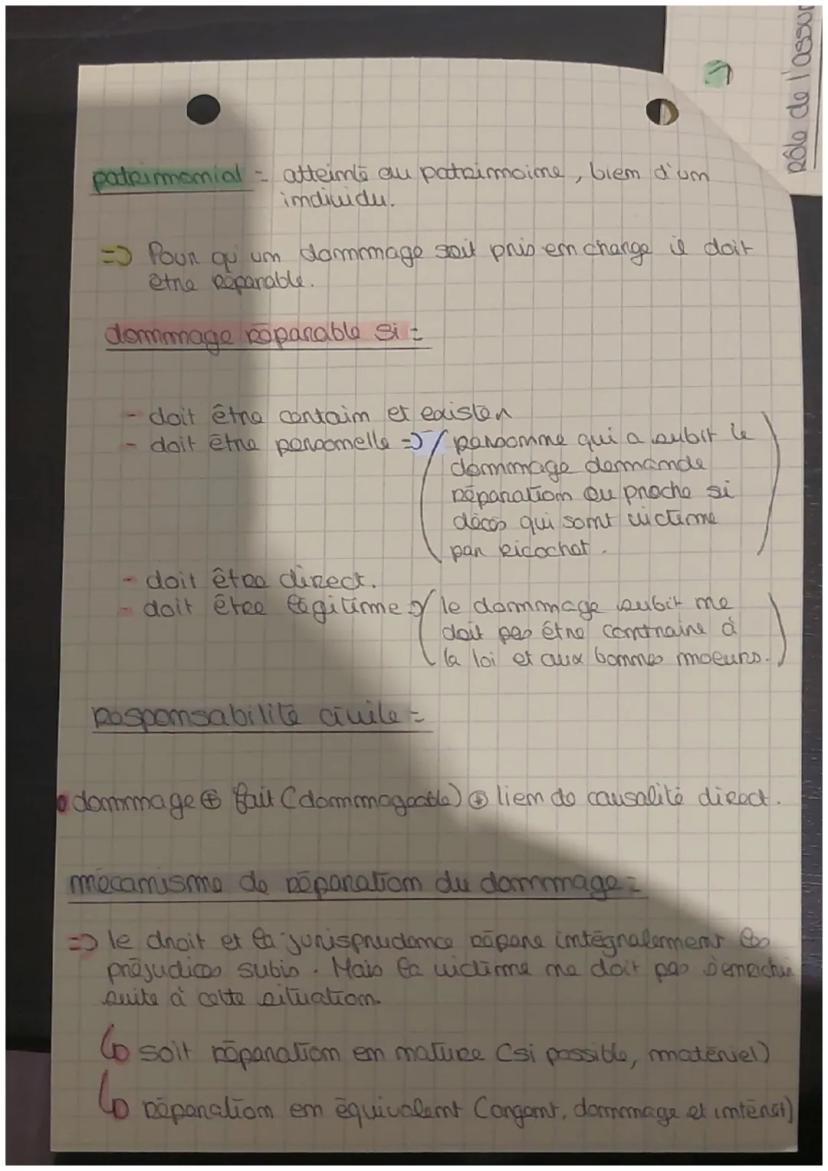 Rôle de l'assur
1
patrimonial = atteinte au patrimoine, bien d'un
individu.
=> Pour qu'un dommage soit pris en charge il doit
être réparable.
dommage réparable si =
- doit être certain et exister
- doit être personnelle => ( personne qui a subit le
dommage demande
réparation ou proche si
décès qui sont victime
par ricochet. )
- doit être direct.
- doit être légitime => ( le dommage subit ne
doit pas être contraire à
la loi et aux bonnes moeurs. )
Responsabilité civile =
• dommage ⊕ fait (dommageable) ⊕ lien de causalité direct.
mécanisme de réparation du dommage =
=> le droit et la jurisprudence répare intégralement les
préjudices subis. Mais la victime ne doit pas s'enrichir
suite à cette situation.
↳ soit réparation en nature (si possible, matériel)
↳ réparation en équivalent (argent, dommage et intérêt)